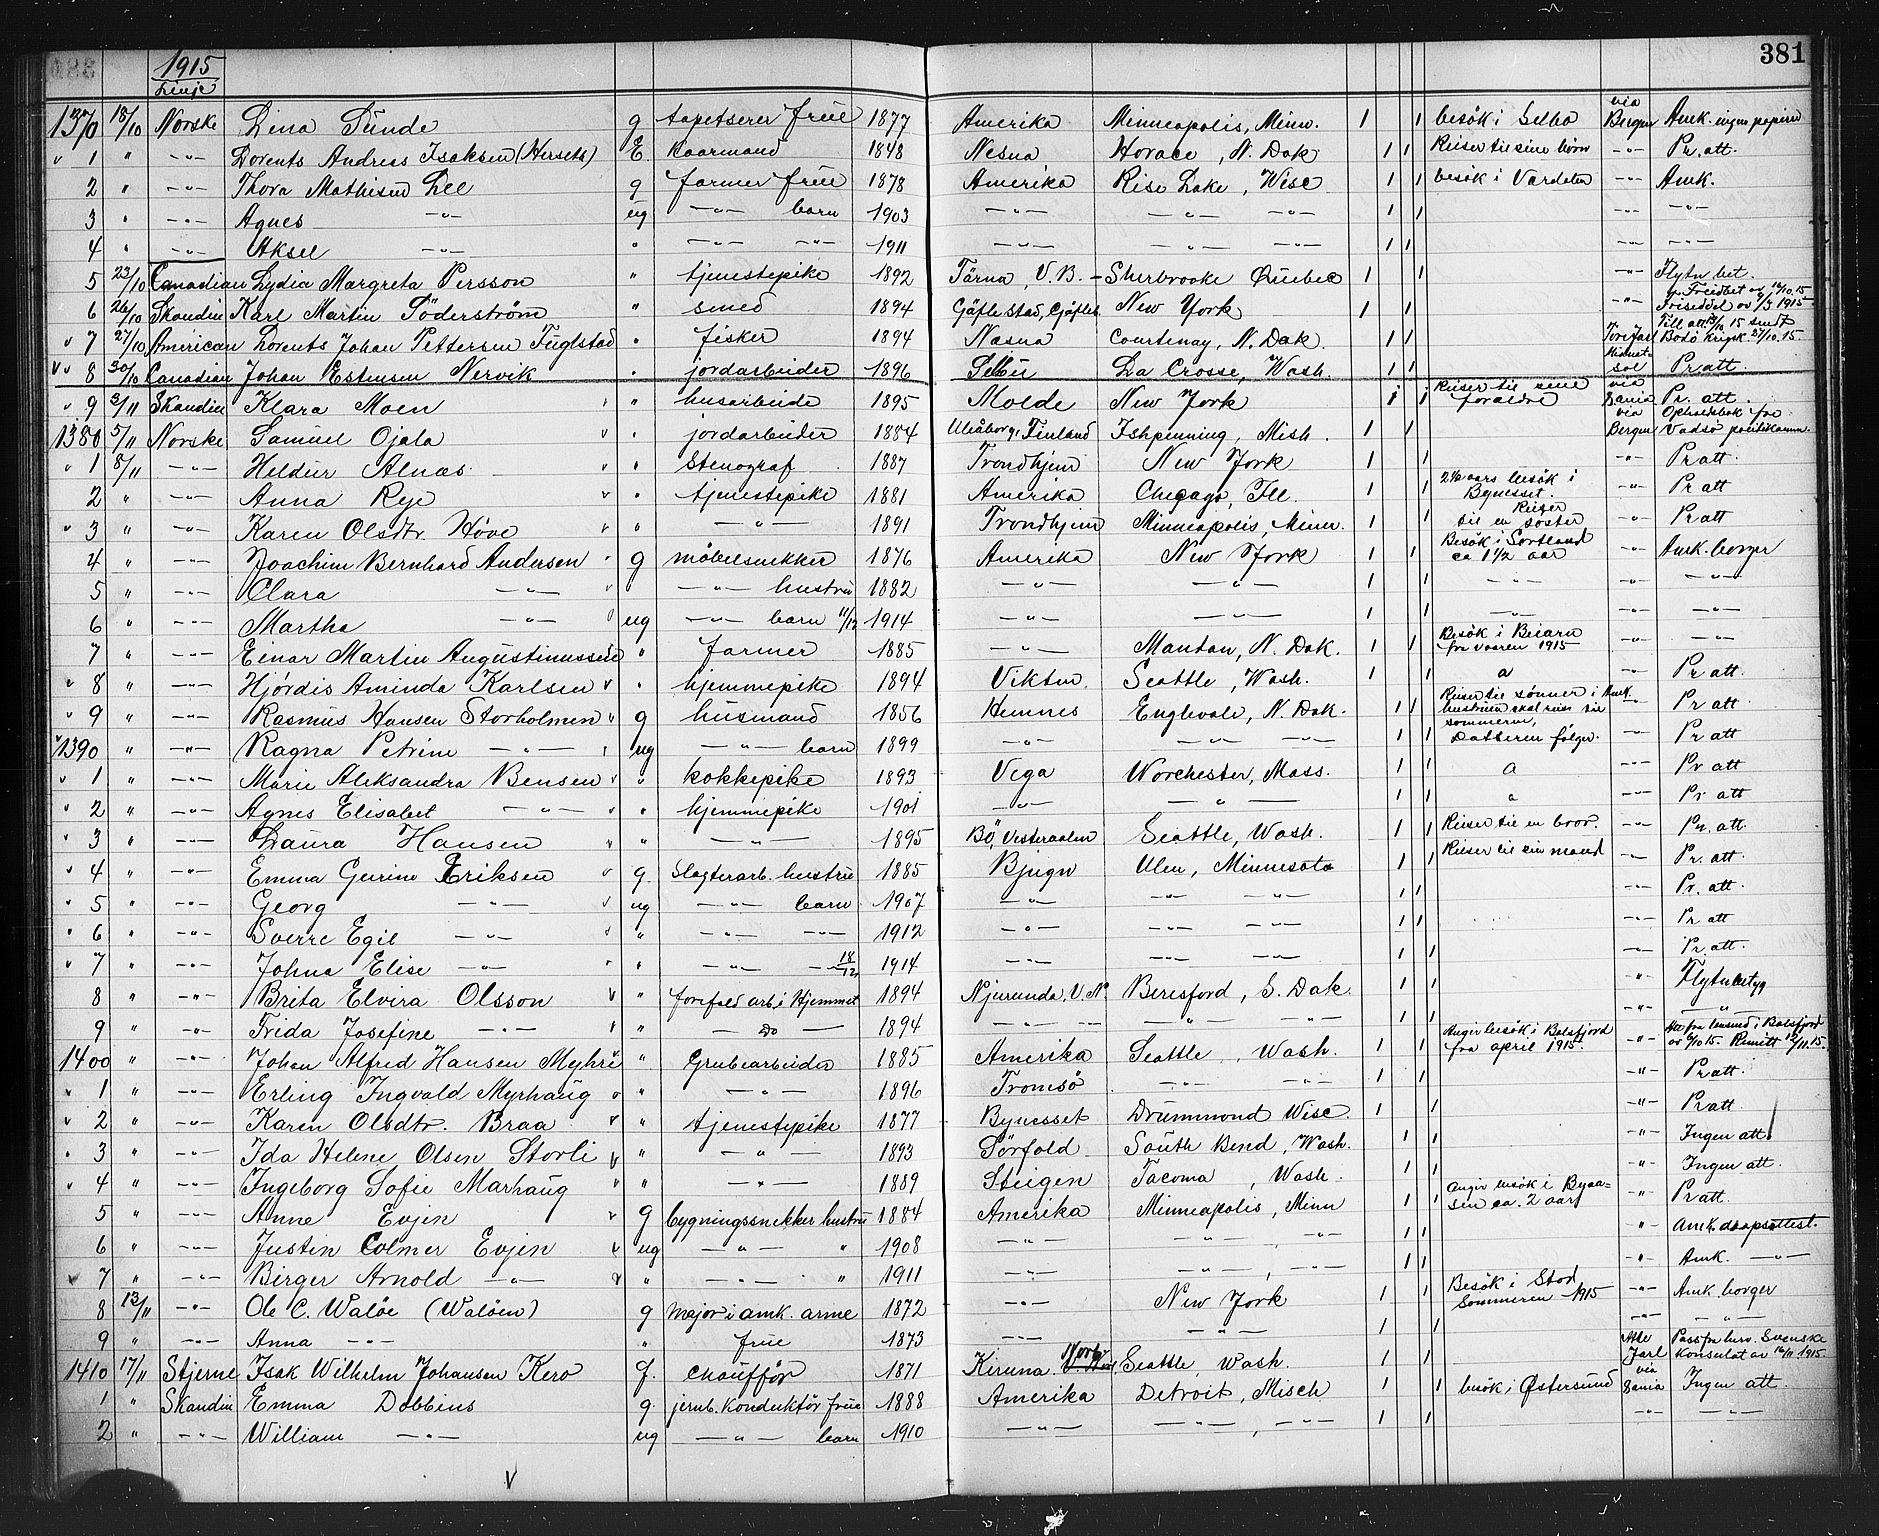 381
1915
Linje
1370 18/10 Norske Lina Sunde g tapetserer frue 1877 Amerika Minneapolis, Minn. 1 1 besök i Selbo via Bergen Amk. ingen papirer
" 1 " -"- Lorents Andreas Isaksen (Herseth) E. kaarmand 1848 Nesna Horace, N. Dak. 1 1 Reiser til sine börn -"- Pr. att.
2 " -"- Thora Mathisen Lee g farmer frue 1878 Amerika Rise Lake, Wisc 1 1 besök i Vardalen -"- Amk.
3 " -"- Agnes -"- ug -"- barn 1903 -"- -"- -"- 1 1 -"- -"-
4 " -"- Aksel -"- " -"- -"- 1911 -"- -"- -"- 1 1 -"- -"-
5 23/10 Canadian Lydia Margreta Persson " tjenestepike 1892 Tärna, V.B. - Sherbrooke Quebec 1 1 -"- Flytn. bet.
6 26/10 Skandin Karl Martin Söderström " smed 1894 Gäfle stad, Gäfleb. New York 1 1 -"- Frisedel av 9/3 1915
" 7 27/10 American Lorents Johan Pettersen Fuglstad " fisker 1894 Nesna Courtenay, N. Dak. 1 1 Bodö 27/10.15
" 8 30/10 Canadian Johan Estensen Nervik " jordarbeider 1896 Selbu La Crosse, Wash. 1 1 Pr att.
" 9 3/11 Skandin Klara Moen " husarbeide 1895 Molde New York 1 1 Reiser til sine foreldre via Dania Pr. att.
1380 5/11 Norske Samuel Ojala " jordarbeider 1884 Uleåborg, Finland Ishpenning, Mish. 1 1 via Bergen Opholdsbok fra Vadsö politikamm.
" 1 8/11 -"- Heldur Alnæs " stenograf 1887 Trondhjem New York 1 1 -"- Pr att.
2 " -"- Anna Rye " tjenestepike 1881 Amerika Chicago, Ill. 1 1 2½ aars besök i Bynesset. -"- Pr att
" 3 " -"- Karen Olsdtr. Höve " -"- 1891 Trondhjem Minneapolis, Minn. 1 1 Reiser til en söster -"- Pr att
4 " -"- Joachim Bernhard Andersen g möbelsnekker 1876 Amerika New York 1 1 Besök i Sortland ca 1½ aar -"- Amk. borger
5 " -"- Clara -"- " -"- hustru 1882 -"- -"- 1 1 -"- -"- -"-
6 " -"- Martha -"- ug -"- barn 11/12 1914 -"- -"- 1 1 -"- -"- -"-
7 " -"- Einar Martin Augustinussen " farmer 1885 -"- Mantan, N. Dak. 1 1 Besök i Beiarn fra vaaren 1915 -"- -"-
" 8 " -"- Hjördis Aminda Karlsen " hjemmepike 1894 Vikten Seattle, Wash. 1 1 a -"- Pr att.
" 9 " -"- Rasmus Hansen Storholmen g husmand 1856 Hemnes Englevale, N. Dak. 1 1 Reiser til sönner i Amk. hustruen skal reise til sommeren, -"- Pr att
" 1390 " -"- Ragna Petrine -"- ug -"- barn 1899 -"- -"- -"- 1 1 Datteren fölger. -"- Pr att
" 1 " -"- Marie Aleksandra Bensen " kokkepike 1893 Vega Worchester, Mass. 1 1 a -"- Pr att
" 2 " -"- Agnes Elisabet -"- " hjemmepike 1901 -"- -"- 1 1 a -"- Pr att
" 3 " -"- Laura Hansen " -"- 1895 Bö, Vesteraalen Seattle, Wash. 1 1 Reiser til en bror. -"- Pr. att.
" 4 " -"- Emma Gurine Eriksen g. Slagterarb. hustru 1885 Bjugn Ulen, Minnesota 1 1 Reiser til sin mand -"- Pr. att.
" 5 " -"- Georg -"- ug -"- barn 1907 -"- -"- -"- 1 1 -"- Pr. att.
" 6 " -"- Sverre Egil -"- " -"- -"- 1912 -"- -"- -"- 1 1 -"- Pr att
" 7 " -"- Johna Elise -"- " -"- 18/12 1914 -"- -"- -"- 1 1 -"- Pr. att.
8 " -"- Brita Elvira Olsson " forefald arb. i Hjemmet 1894 Njurunda, V. N. Beresford, S. Dak. 1 1 " Flytnbetyg
9 " -"- Frida Josefine -"- " Do 1894 -"- -"- -"- 1 1 -"- -"-
1400 " -"- Johan Alfred Hansen Myhre " Grubearbeider 1885 Amerika Seattle, Wash. 1 1 Angir besök i Balsfjord fra april 1915. -"- Att fra lensmd i Balsfjord
" 1 " -"- Erling Ingvald Myrhaug " -"- 1896 Tromsö -"- -"- 1 1 -"- Pr att.
" 2 " -"- Karen Olsdtr. Braa " tjenestepike 1877 Bynesset Drummond Wisc. 1 1 -"- Pr att.
" 3 " -"- Ida Helene Olsen Storli " -"- 1893 Sörfold South Bend, Wash. 1 1 -"- Ingen att.
" 4 " -"- Ingeborg Sofie Marhaug " -"- 1889 Steigen Tacoma, Wash. 1 1 -"- Ingen att.
5 " -"- Anne Evjen g bygningssnekker hustru 1884 Amerika Minneapolis, Minn 1 1 angir besök i Byaasen ca. 2 aar -"- Pr att.
6 " -"- Justin Colmer Evjen ug -"- " 1908 -"- -"- -"- 1 1 " Amk. daapsattest.
7 " -"- Birger Arnold -"- " -"- " 1911 -"- -"- -"- 1 1 -"- Amk. -"-
8 13/11 -"- Ole C. Walöe (Walöen) g major i amk. arme 1872 -"- New York 1 1 Besök i Stod Sommeren 1915 -"- Amk. borger
9 " -"- Anna -"- " frue 1873 -"- -"- 1 1 -"- -"-
1410 17/11 Stjerne Isak Wilhelm Johansen Kero g. chaufför 1871 Kiruna, Norb. Seattle, Wash. 1 1 Jarl Pass fra herv. Svenske Konsulat av 16/11 1915.
1 " Skandin Emma Dobbins g. jernb. konduktör frue 1888 Amerika Detroit, Misch 1 1 besök i Østersund via Dania Ingen att.
2 " -"- William -"- ug -"- barn 1910 -"- -"- -"- 1 1 -"- -"-